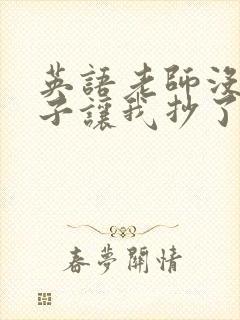 英語老師沒
子讓我抄了
春夢關情